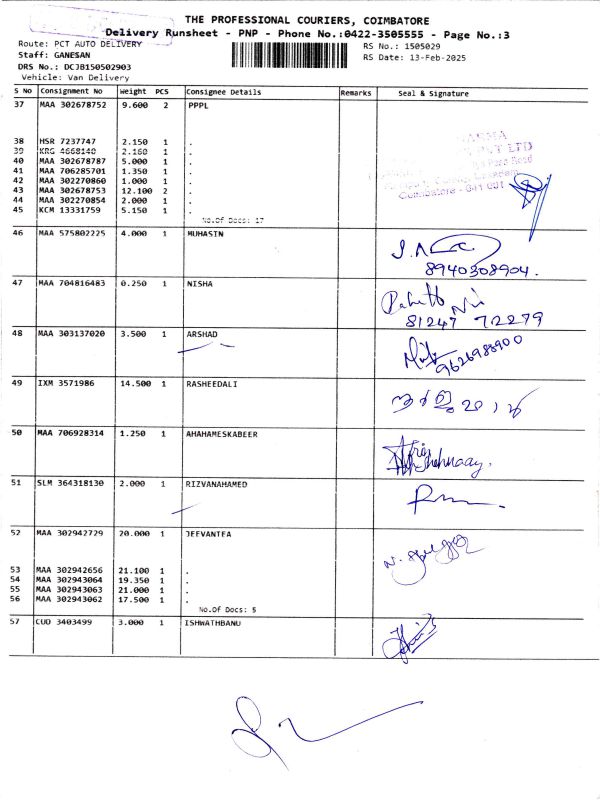 THE PROFESSIONAL COURIERS, COIMBATORE
Delivery Runsheet - PNP - Phone No.:0422-3505555 - Page No.:3
Route: PCT AUTO DELIVERY
RS No.: 1505029
Staff: GANESAN
RS Date: 13-Feb-2025
DRS No.: DCJB150502903
Vehicle: Van Delivery
S No Consignment No Weight PCS Consignee Details Remarks Seal & Signature
37 MAA 302678752 9.600 2 PPPL
38 HSR 7237747 2.150 1 .
39 KRG 4668140 2.160 1 .
40 MAA 302678787 5.000 1 .
41 MAA 706285701 1.350 1 .
42 MAA 302270860 1.000 1 .
43 MAA 302678753 12.100 2 .
44 MAA 302270854 2.000 1 .
45 KCM 13331759 5.150 1 .
PVT LTD
Coimbatore - 641 001
No.Of Docs: 17
46 MAA 575802225 4.000 1 MUHASIN
8940308904.
47 MAA 704816483 0.250 1 NISHA
81247 72279
48 MAA 303137020 3.500 1 ARSHAD
9626988900
49 IXM 3571986 14.500 1 RASHEEDALI
50 MAA 706928314 1.250 1 AHAHAMESKABEER
51 SLM 364318130 2.000 1 RIZVANAHAMED
52 MAA 302942729 20.000 1 JEEVANTEA
53 MAA 302942656 21.100 1 .
54 MAA 302943064 19.350 1 .
55 MAA 302943063 21.000 1 .
56 MAA 302943062 17.500 1 .
No.Of Docs: 5
57 CUD 3403499 3.000 1 ISHWATHBANU